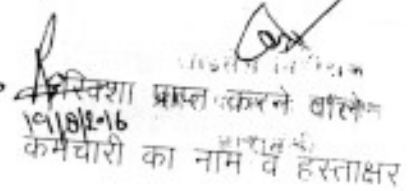 रिक्शा प्राप्त करने वाले
19/8/2016
कर्मचारी का नाम व हस्ताक्षर